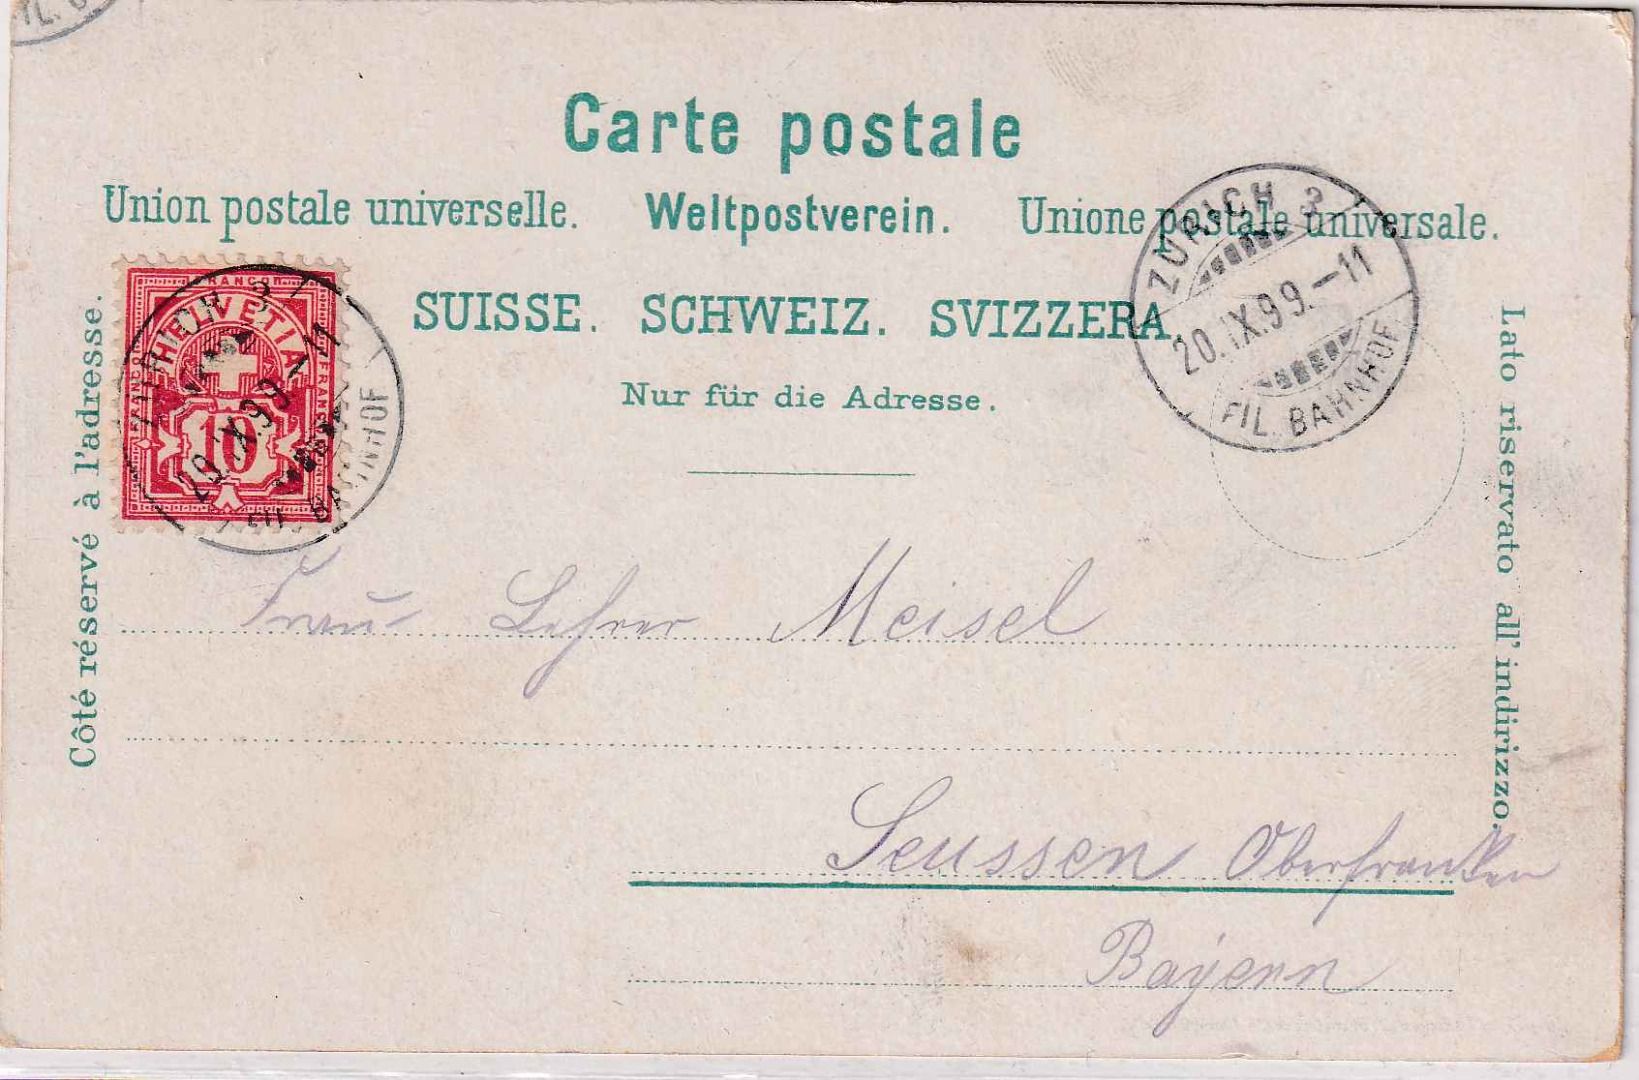 Carte postale
Union postale universelle. Weltpostverein. Unione postale universale.
SUISSE. SCHWEIZ. SVIZZERA.
Nur für die Adresse.
Côté réservé à l'adresse.
Lato riservato all' indirizzo.
FRANCO
HELVETIA
FRANCO
FRANCO
10
ZÜRICH 3
20.IX.99.-11
FIL. BAHNHOF
ZÜRICH 3
20.IX.99.-11
FIL. BAHNHOF
Frau Lehrer Meisel
Seussen Oberfranken
Bayern